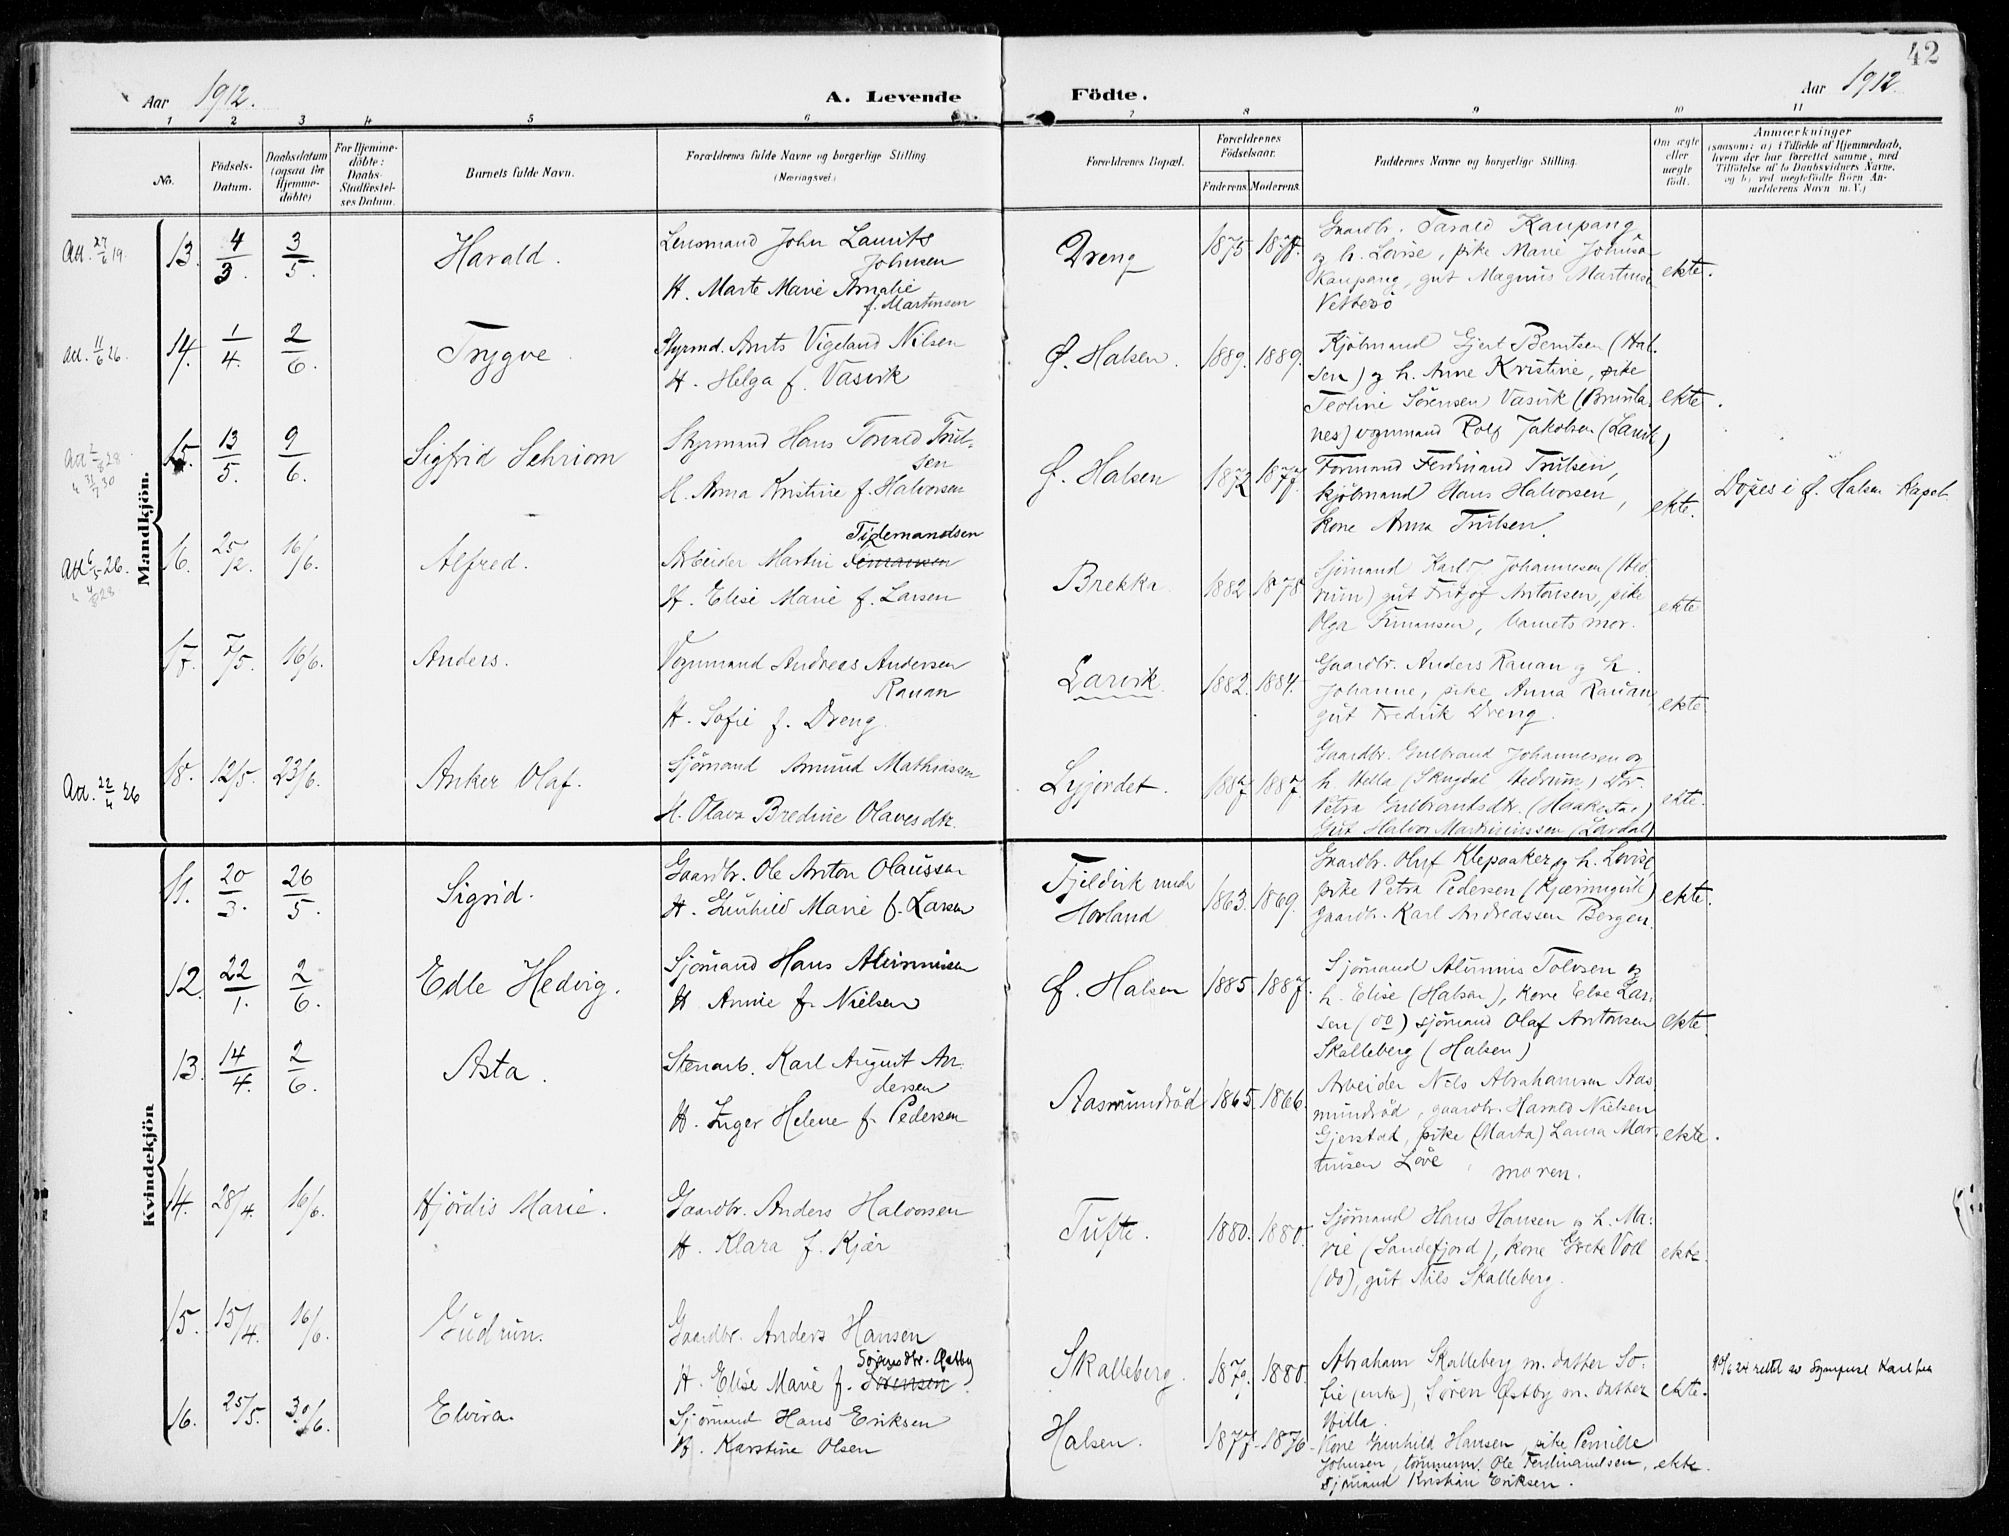 42
Aar 1912.
A. Levende Födte.
Aar 1912.
1 2 3 4 5 6 7 8 9 10 11
No.
Födsels-Datum.
Daabsdatum (ogsaa for Hjemme-döbte)
For Hjemme-döbte: Daabs-Stadfæstel-ses Datum.
Barnets fulde Navn.
Forældrenes fulde Navne og borgerlige Stilling (Næringsvei.)
Forældrenes Bopæl.
Forældrenes Födselsaar.
Faderens. Moderens.
Faddernes Navne og borgerlige Stilling.
Om ægte eller uægte födt.
Anmærkninger
(saasom: a) i Tilfælde af Hjemmedaab,
hvem der har forrettet samme, med
Tilföielse af to Daabsvidners Navne,
og b) ved uægtefödte Börn An-
melderens Navn m. V.)
Mandkjön.
Att. 27/6 19.
13. 4/3. 3/5. Harald.
Lensmand John Laurits
Johnsen
H. Marte Marie Amalie
f. Martinsen
Dreng 1875
Gaardbr. Tarald Kaupang
og h. Lovise, pike Marie Johnsen
Kaupang, gut Magnus Martinsen
ekte.
Att. 11/6 26.
14. 1/4. 2/6. Trygve.
Styrmd. Ants Vigeland Nilsen
H. Helga f. Vasvik
Ø. Halsen. 1889. 1889.
Kjøbmand Gjert Berntsen (Hal-
sen) og h. Anne Kristine, pike
Teoline Sørensen Vasvik (Brunla-
nes) vognmand Rolf Jakobsen (Larvik)
ekte.
15. 13/5. 9/6. Sigfrid Sehriom
Styrmand Hans Torvald Trul-
sen
H. Anna Kristine f. Halvorsen
Ø. Halsen 1872 1877.
Formand Ferdinand Trulsen,
kjøbmand Hans Halvorsen,
kone Anna Trulsen.
ekte.
Døpes i Ø. Halsen Kapel.
Att 6/5 26.
16. 25/2. 16/6. Alfred.
Tidemandsen
Arbeider Martin
H. Elise Marie f. Larsen
Brekka 1882 1878.
Sjømand Karl Johannesen (Hed-
rum) gut Fritjof Antonsen, pike
Olga Timansen, barnets mor.
ekte
17. 7/5. 16/6. Anders.
Vognmand Andreas Andersen
Rauan
H. Sofie f. Dreng.
Larvik 1882. 1884.
Gaardbr. Anders Rauan og h.
Johanne, pike Anna Rauan,
gut Fredrik Dreng.
ekte.
Att. 22/4 26
18. 12/5. 23/6. Anker Olaf.
Sjømand Amund Mathiassen
H. Olava Bredine Olavesdtr.
Lyjordet. 1887 1887.
Gaardbr. Gulbrand Johannesen og
h. Hella (Skugdal Hedrum) Dtr.
Petra Gulbrandsdtr. (Haakestad)
Gut Halvor Martiniussen (Lardal)
ekte.
Kvindekjön
11. 20/3. 26/5. Sigrid.
Gaardbr. Ole Anton Olaussen
H. Gunhild Marie f. Larsen
Fjeldvik und.
Horland
1863. 1869.
Gaardbr. Oluf Klepaaker og h. Lovise
pike Petra Pedersen (Kjærringvik)
Gaardbr. Karl Andreassen Bergen.
ekte.
12. 22/1. 2/6. Edle Hedvig.
Sjømand Hans Aluminsen
H. Annie f. Nielsen
Ø. Halsen 1885. 1887.
Sjømand Alumins Tolvsen og
h. Elise (Halsen), kone Else Lar-
sen (do) sjømand Olaf Antonsen
Skalleberg (Halsen)
ekte.
13. 14/4. 2/6. Asta.
Stenarb. Karl August An-
dersen
H. Inger Helene f. Pedersen
Aasmundrød 1865. 1866.
Arbeider Nils Abrahamsen Aas-
mundrød, gaardbr. Harald Nielsen
Gjerstad, pike (Marta) Laura Mar-
tinsen Løve, moren.
ekte.
14. 28/4. 16/6. Hjördis Marie.
Gaardbr. Anders Halvorsen
H. Klara f. Kjær
Tufte. 1880. 1880.
Sjømand Hans Hansen og h. Ma-
rie (Sandefjord), kone Grete Voll
(do), gut Nils Skalleberg.
ekte.
15. 15/4. 16/6. Gudrun.
Gaardbr. Anders Hansen
Sørensdtr. Østby
H. Elise Marie f. Sørensen.
Skalleberg. 1879. 1880.
Abraham Skalleberg m. datter So-
fie (enke), Søren Østby m. datter
Hilla.
ekte.
16. 25/5. 30/6. Elvira.
Sjømand Hans Eriksen
H. Karstine Olsen
Halsen. 1877. 1876.
Kone Gunhild Hansen, pike Pernille
Johnsen, tømmerm. Ole Ferdinandsen,
sjømand Kristian Eriksen.
ekte.